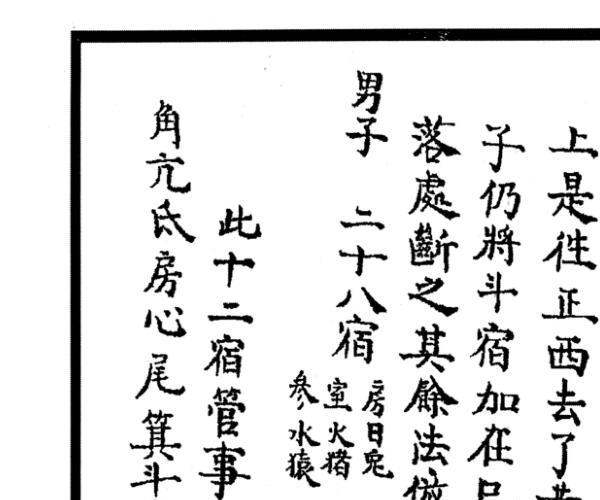 上是徃正西去了
子仍將斗宿加在
落處斷之其餘法倣
男子 二十八宿
房日兎
室火猪
參水猿
此十二宿管事
角亢氐房心尾箕斗